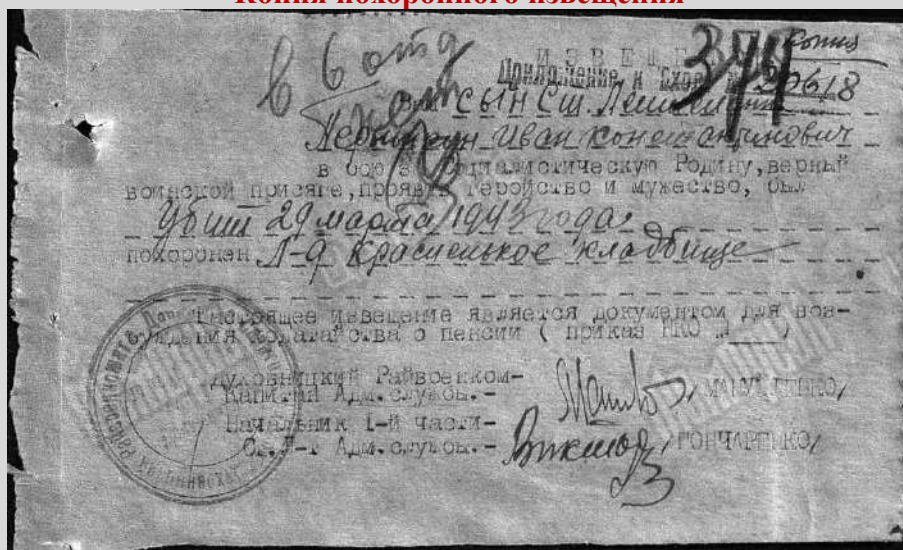 Копия похоронного извещения
Копия
в 6 отд
ИЗВЕЩЕ
Приложение к Вход. 20618
Ваш сын Ст. Лейтенант
Иван Константинович
в бою за Социалистическую Родину, верный
воинской присяге, проявив геройство и мужество, был
Убит 29 марта 1943 года.
похоронен Л-д Красненькое кладбище
Настоящее извещение является документом для воз-
буждения ходатайства о пенсии ( приказ НКО № )
Духовницкий Райвоенком-
Капитан Адм.службы.-
Начальник 1-й части-
Ст.Л-т Адм.службы.- /ГОНЧАРЕНКО/